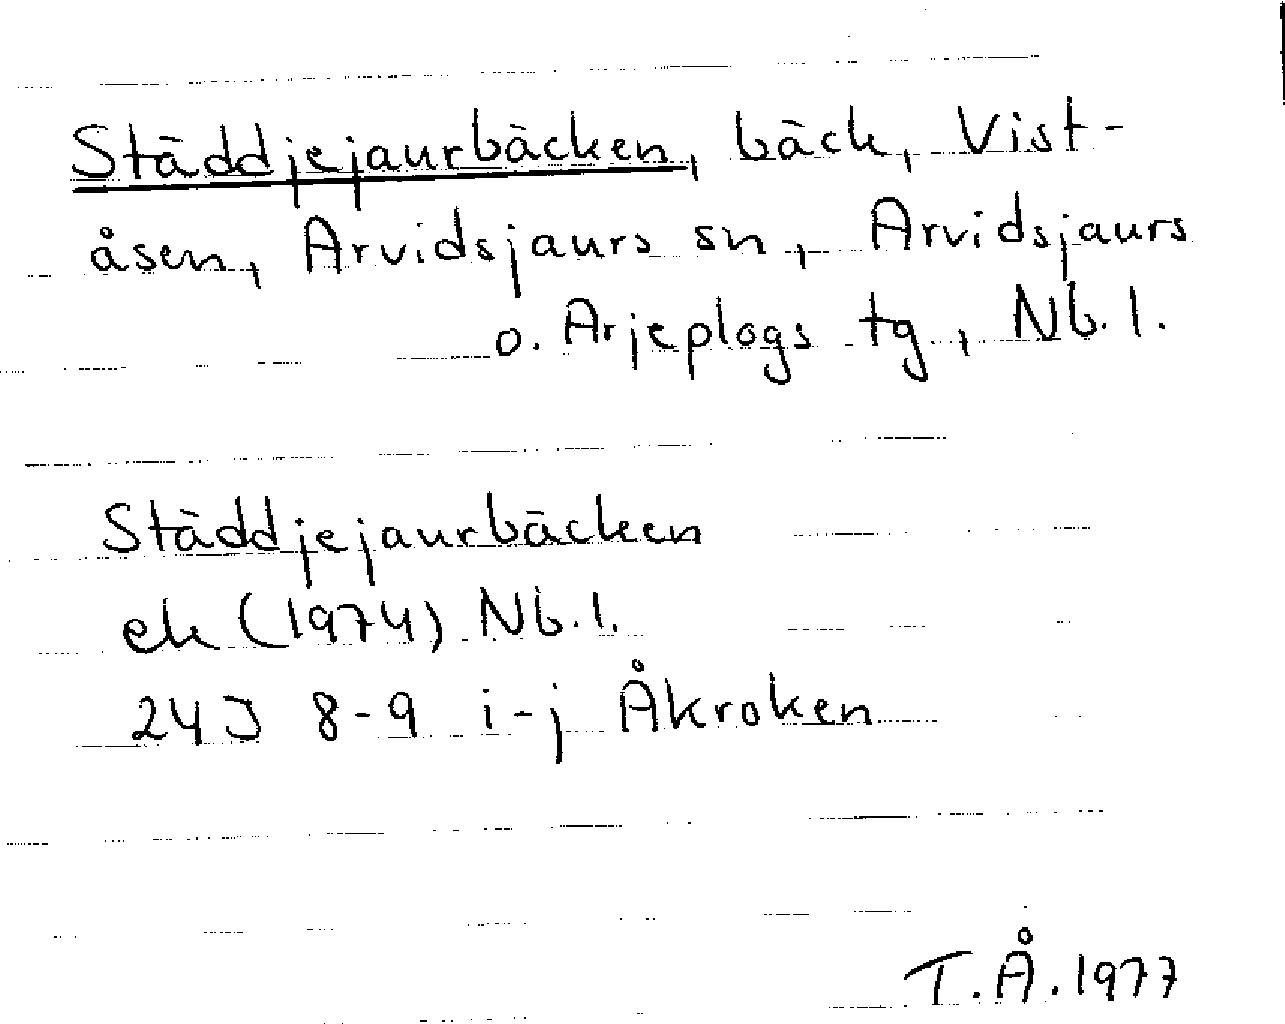 Städdjejaurbäcken, bäck, Vist-
åsen, Arvidsjaurs sn, Arvidsjaurs
o. Arjeplogs tg, Nb. l.
Städdjejaurbäcken
ek (1974) Nb. l.
24J 8-9 i-j Åkroken
T.Å. 1977